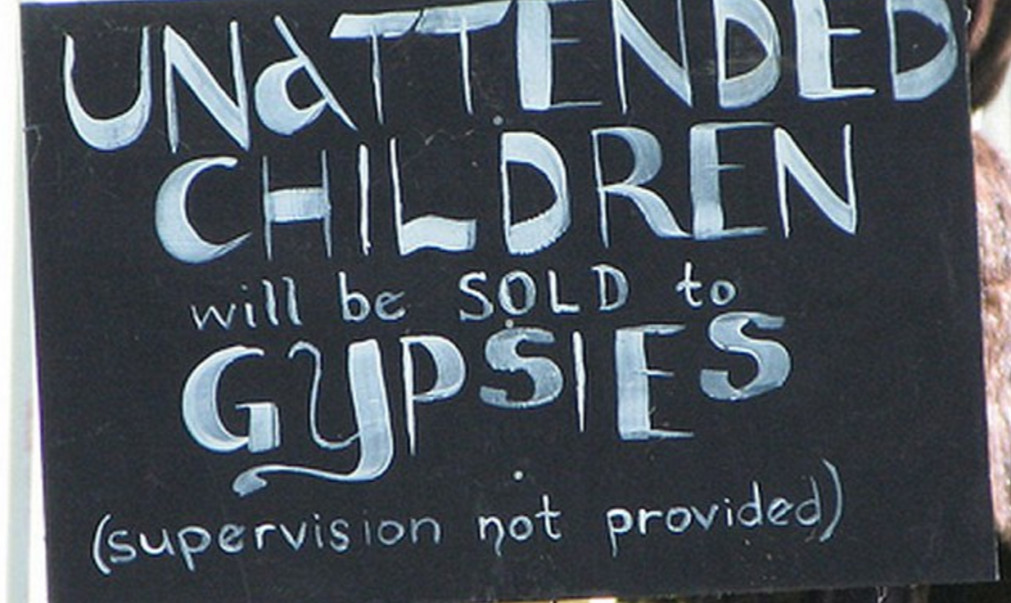 UNaTTENDED
CHILDREN
will be SOLD to
GYPSIES
(supervision not provided)